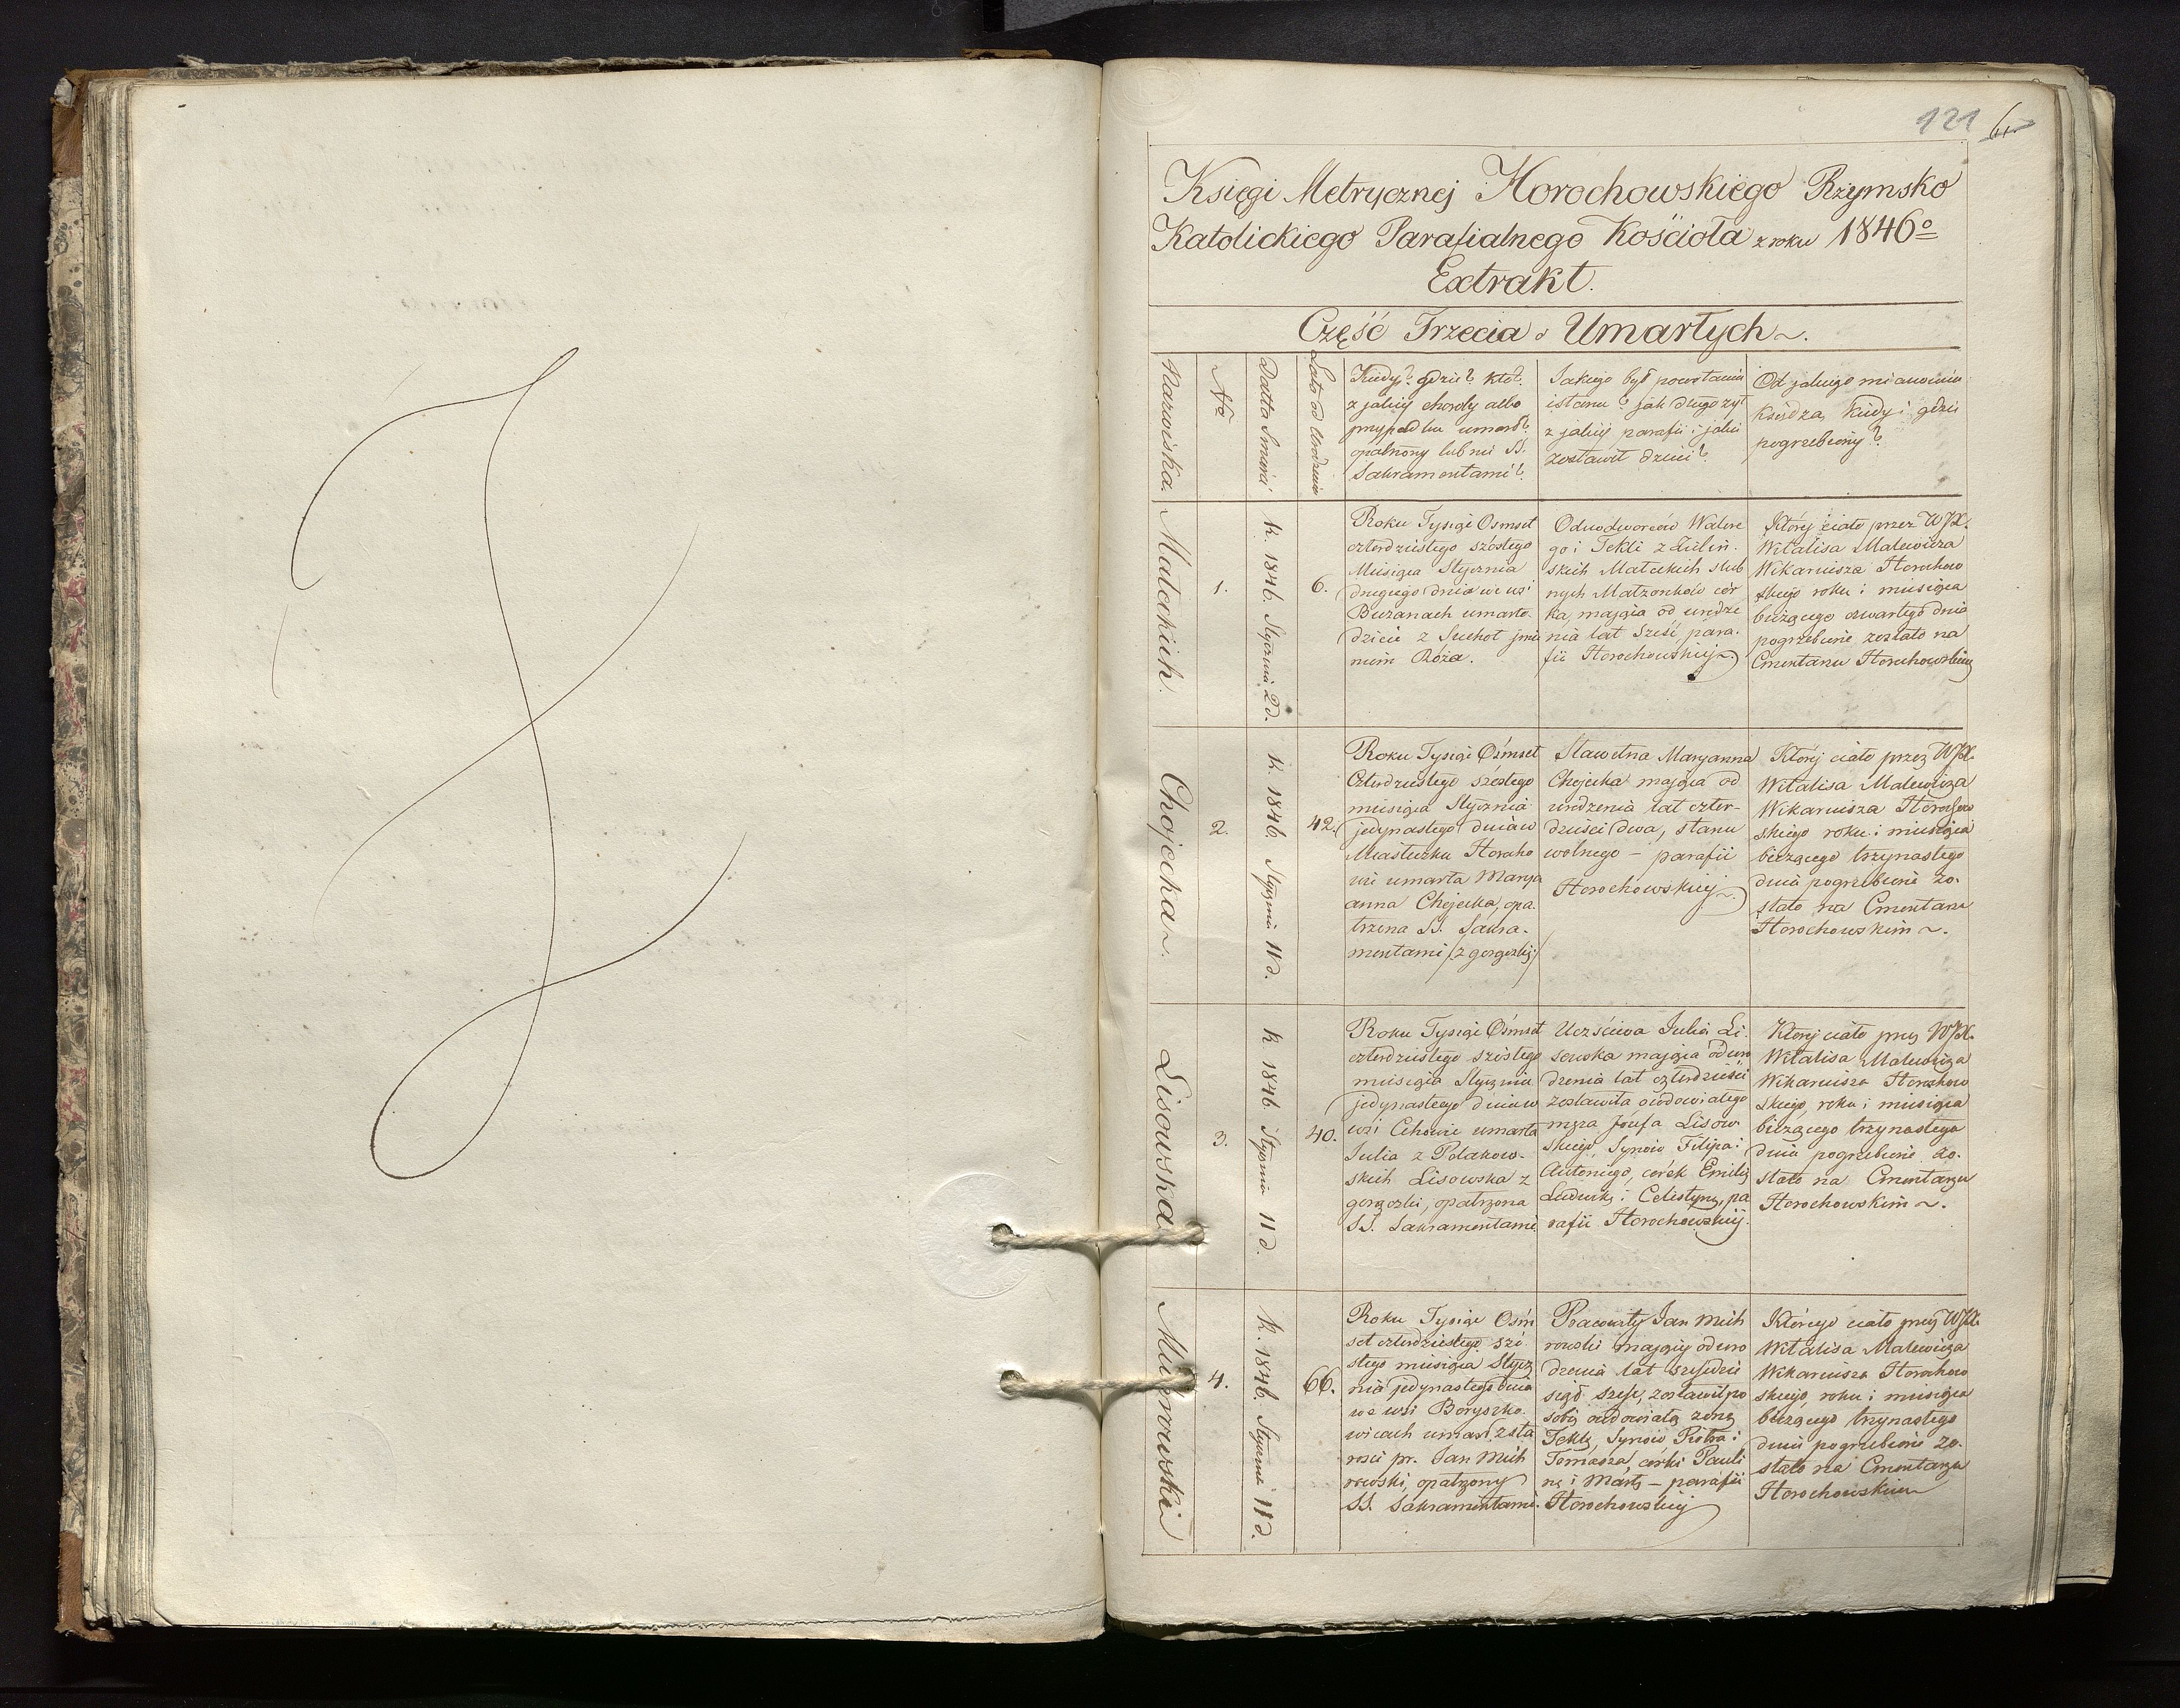 121
Księgi Metrycznej Horochowskiego Rzymsko
Katolickiego Parafialnego Kościoła z roku 1846o
Extrakt.
Część Trzecia o Umarłych
Nazwiska.
No
Datta Smierci
Lata od Urodzenia
Kiedy? gdzie? kto?
z jakiej choroby albo
przypadku umarł?
opatrzony lub nie SS.
Sakramentami?
Jakiego był powołania
i stanu? jak długo żył
z jakiej parafii i jakie
zostawił dzieci?
Od jakiego mianowicie
Księdza, kiedy i gdzie
pogrzebiony?
Małeckich.
1.
R. 1846. Stycznia 2 d.
6.
Roku Tysiąc Osmset
czterdziestego szóstego
Miesiąca Stycznia
drugiego dnia we wsi
Buzanach umarło
dziecie z Suchot jmie
niem Róża.
Odnodworców Walere
go i Tekli z Zieliń
skich Małeckich slub
nych Małżonków cór
ka, mająca od urodze
nia lat sześć, para.
fii Horochowskiej
Której ciało przez WJX.
Witalisa Malewicza
Wikariusza Horochow
skiego roku i miesiąca
bieżącego czwartego dnia
pogrzebione zostało na
Cmentarzu Horochowskim
Chojecka
2.
R. 1846. Stycznia 11 d.
42.
Roku Tysiąc Ośmset
Czterdziestego szóstego
miesiąca Stycznia
jedynastego dnia w
Miasteczku Horocho
wie umarła Marya
anna Chojecka, opa.
trzona SS. Sakra.
mentami /z gorączki/
Sławetna Maryanna
Chojecka mająca od
urodzenia lat czter-
dzieści dwa, stanu
wolnego – parafii
Horochowskiej
Której ciało przez WJX.
Witalisa Malewicza
Wikariusza Horochow
skiego roku i miesiąca
bieżącego trzynastego
dnia pogrzebione zo.
stało na Cmentarzu
Horochowskim
Lisowska
3.
R 1846. Stycznia 11 d.
40.
Roku Tysiąc Ośmset
czterdziestego szóstego
miesiąca Stycznia
jedynastego dnia w
wsi Cehowie umarła
Julia z Polakow-
skich Lisowska z
gorączki, opatrzona
SS. Sakramentami
Uczściwa Julia Li.
sowska mająca od uro
dzenia lat czterdzieści
zostawiła owdowiałego
męża Józefa Lisow
skiego, Synów Filipa i
Antoniego, córek Emilię
Ludwikę i Celestynę, pa
rafii Horochowskiej.
Której ciało przez WJX.
Witalisa Malewicza
Wikariusza Horochow
skiego, roku i miesiąca
bieżącego trzynastego
dnia pogrzebione zo.
stało na Cmentarzu
Horochowskim
4.
R. 1846. Stycznia 11 d.
66.
Roku Tysiąc Ośm
set czterdziestego szó
stego miesiąca Stycz
nia jedynastego dnia
we wsi Boryszko
wicach umarł z sta
rości pr. Jan Mich
rowski, opatrzony
SS. Sakramentami.
Pracowity Jan Mich
rowski mający od uro
dzenia lat sześćdzie
siąt sześć, zostawił po
sobie owdowiałą żonę
Teklę, Synów Piotra i
Tomasza, córki Pauli
nę i Martę – parafii
Horochowskiej
Którego ciało przez WJX.
Witalisa Malewicza
Wikariusza Horochow
skiego, roku i miesiąca
bieżącego trzynastego
dnia pogrzebione zo.
stało na Cmentarzu
Horochowskim